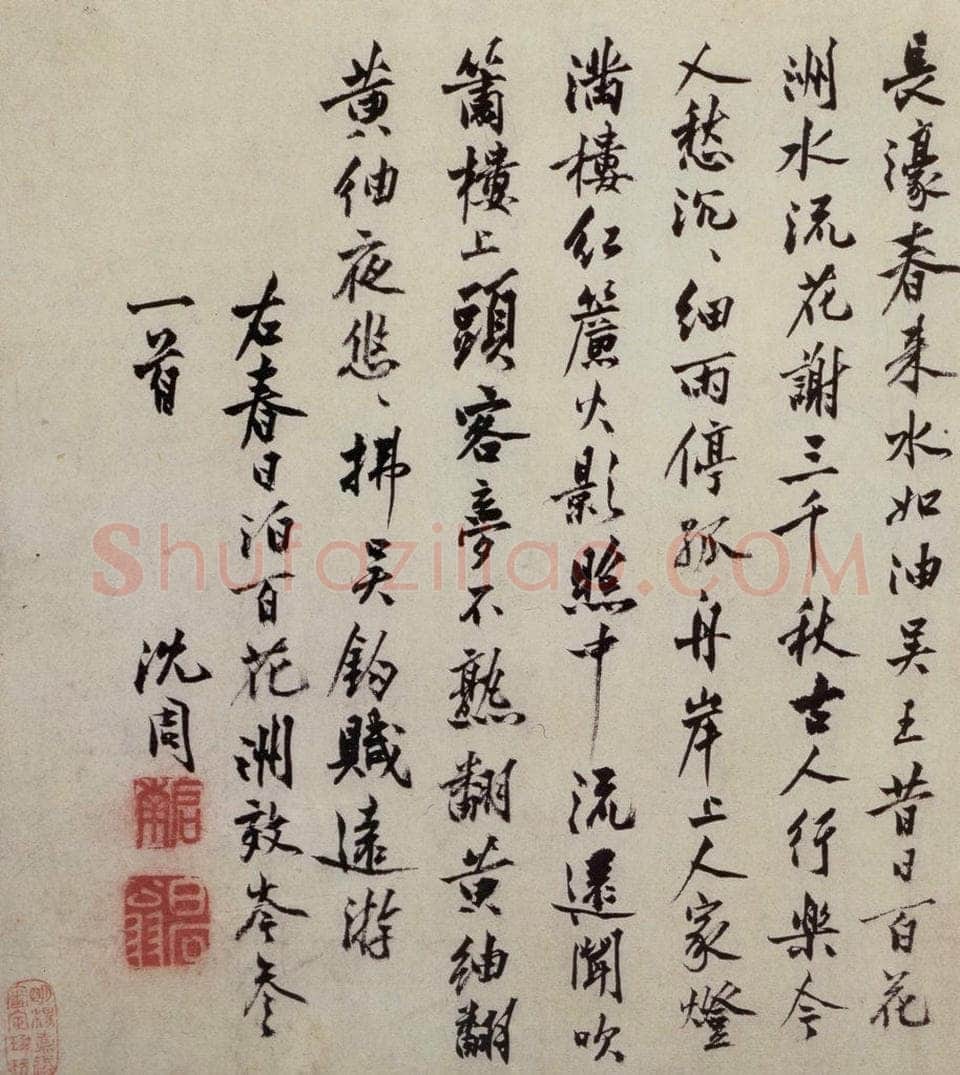 長濠春来水如油吳王昔日百花
洲水流花謝三千秋古人行樂今
人愁沉、細雨停孤舟岸上人家燈
滿樓紅簾火影照中流還聞吹
簫樓上頭客夢不熟翻黄紬翻
黄紬夜悠、拂吳鈎賦遠游
右春日泊百花洲效岑參
一首 沈周
啓南
白石翁
Shufaziliao.COM